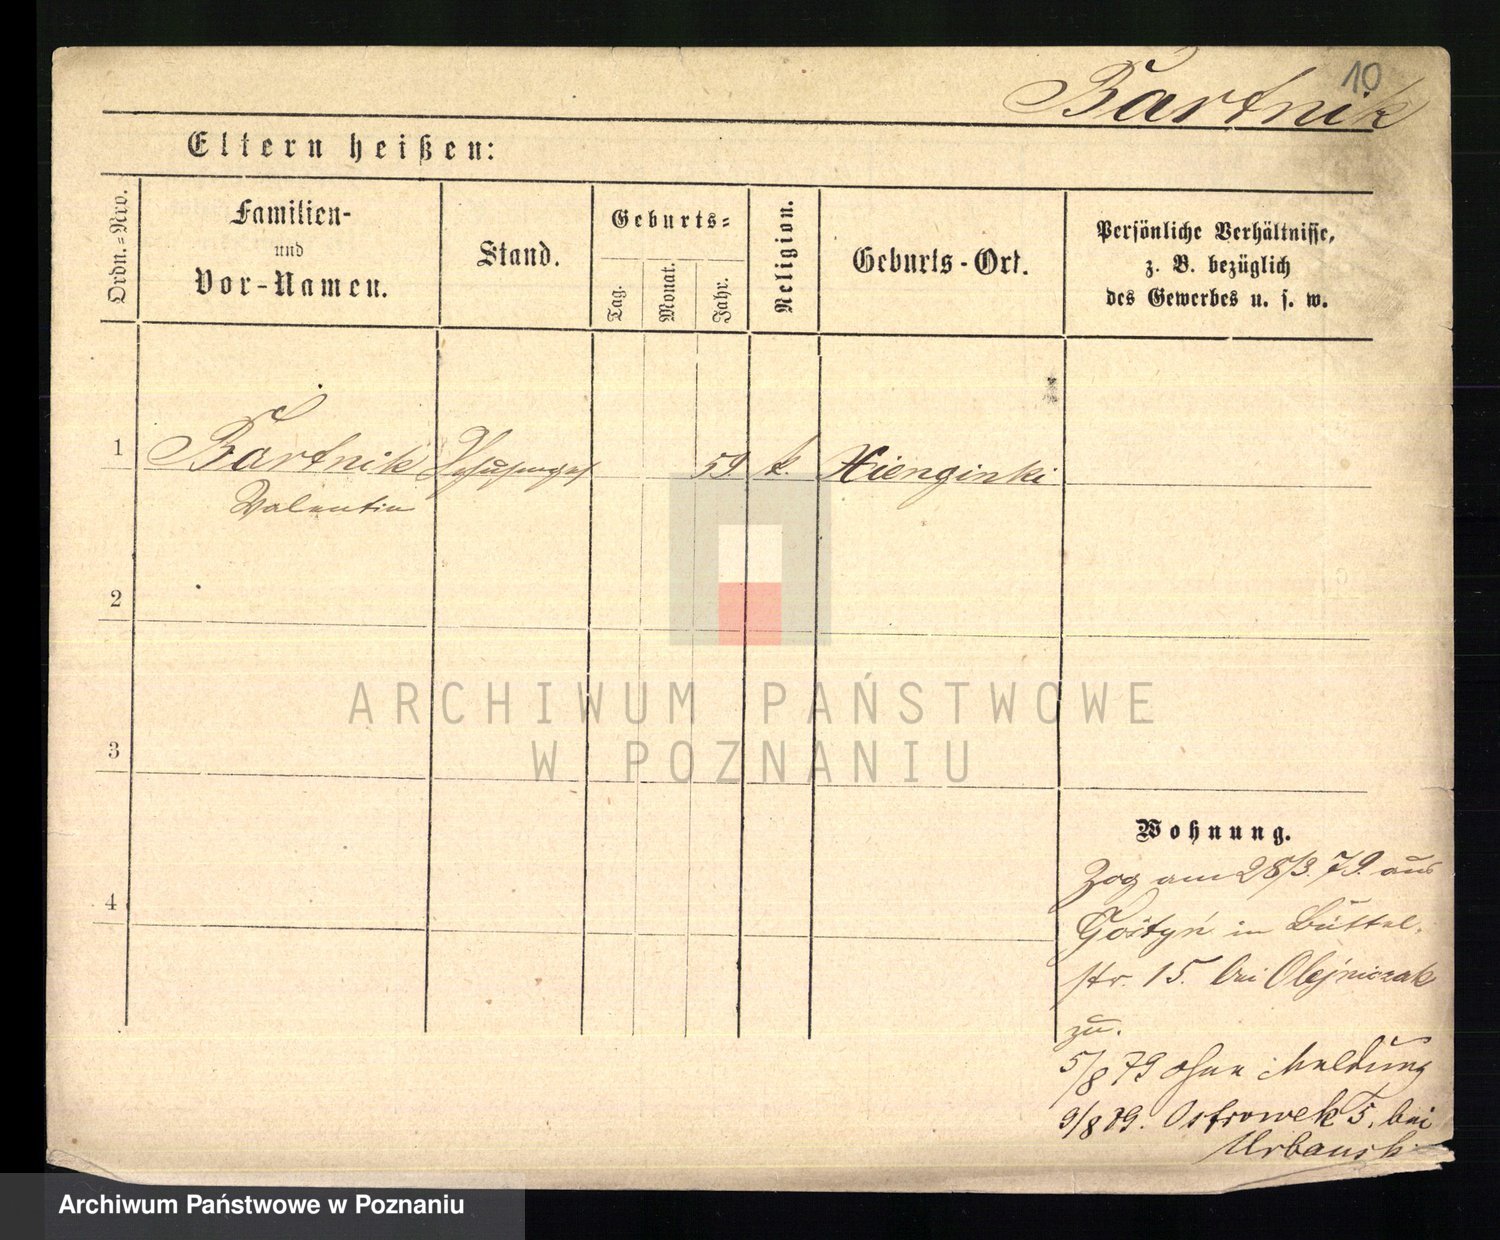 10
Bartnik
Eltern heißen:
Ordn.=Nro.
Familien-
und
Vor-Namen.
Stand.
Geburts=
Tag.
Monat.
Jahr.
Religion.
Geburts-Ort.
Persönliche Verhältnisse,
z. B. bezüglich
des Gewerbes u. s. w.
1
Bartnik
59
k.
Xienginki
Valentin
2
3
4
ARCHIWUM PAŃSTWOWE
W POZNANIU
Wohnung.
Zog am 28/3. 79. aus
Gostyń in Büttel-
str. 15. bei Olejniczak
zu.
5/8 79 ohne Meldung
9/8 79. Ostrowek 5, bei
Urbansk
Archiwum Państwowe w Poznaniu